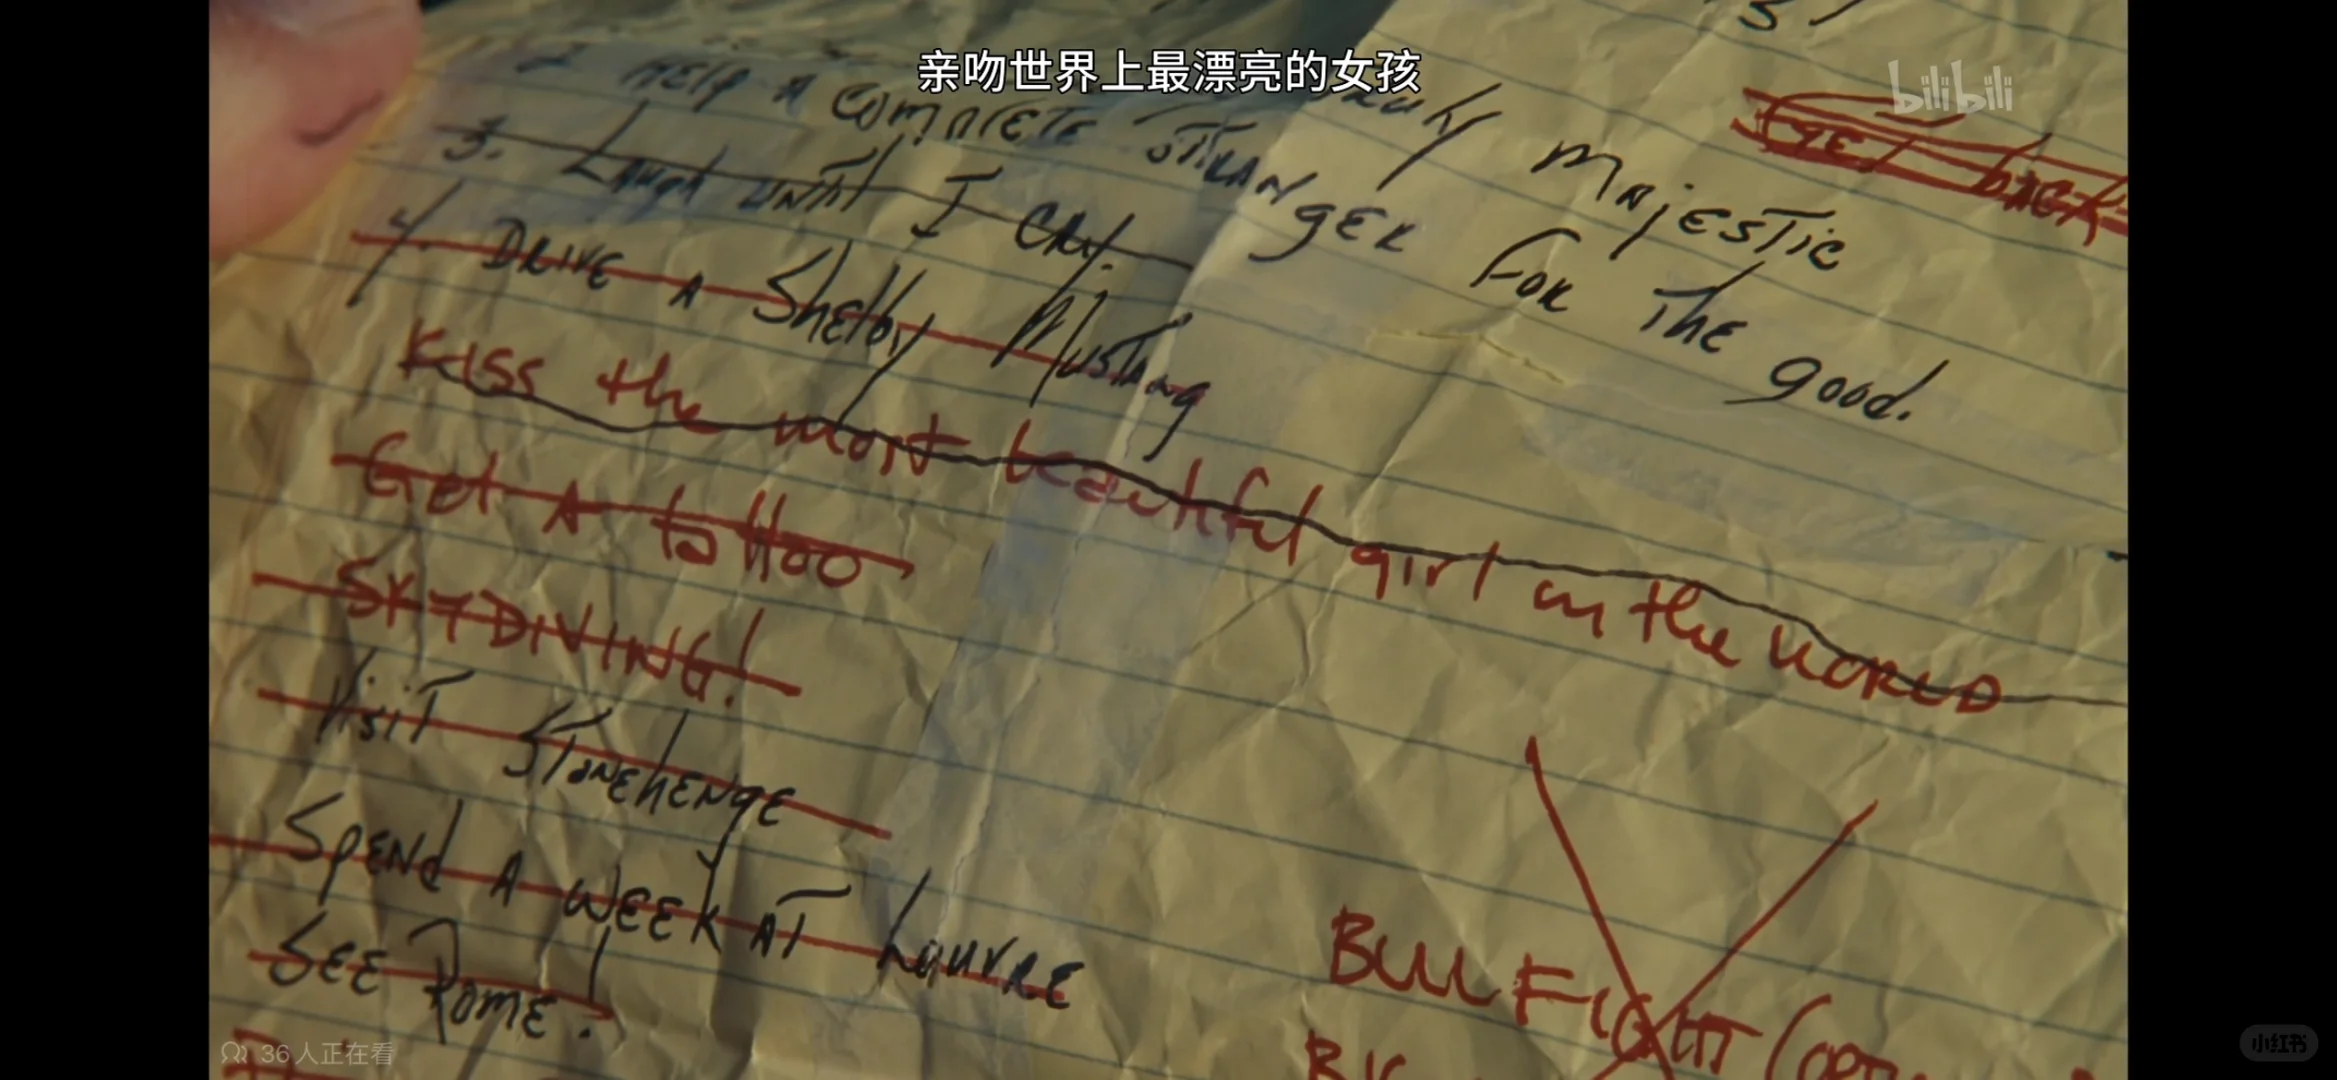 亲吻世界上最漂亮的女孩
bilibili
majestic
HELP A COMPLETE STRANGER FOR THE GOOD.
3. Laugh until I CRY.
4. DRIVE A Shelby Mustang
Kiss the most beautiful girl in the WORLD
Get A tattoo
SKYDIVING!
Visit Stonehenge
Spend A WEEK AT Louvre
SEE Rome!
BULL FIGHT
36人正在看
小红书